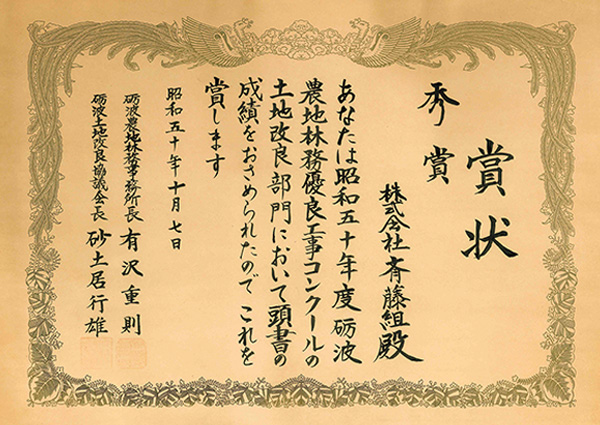 賞状
秀賞
株式会社斉藤組殿
あなたは昭和五十年度砺波
農地林務優良工事コンクールの
土地改良部門において頭書の
成績をおさめられたのでこれを
賞します
昭和五十年十月七日
砺波農地林務事務所長 有沢重則
砺波土地改良協議会長 砂土居行雄